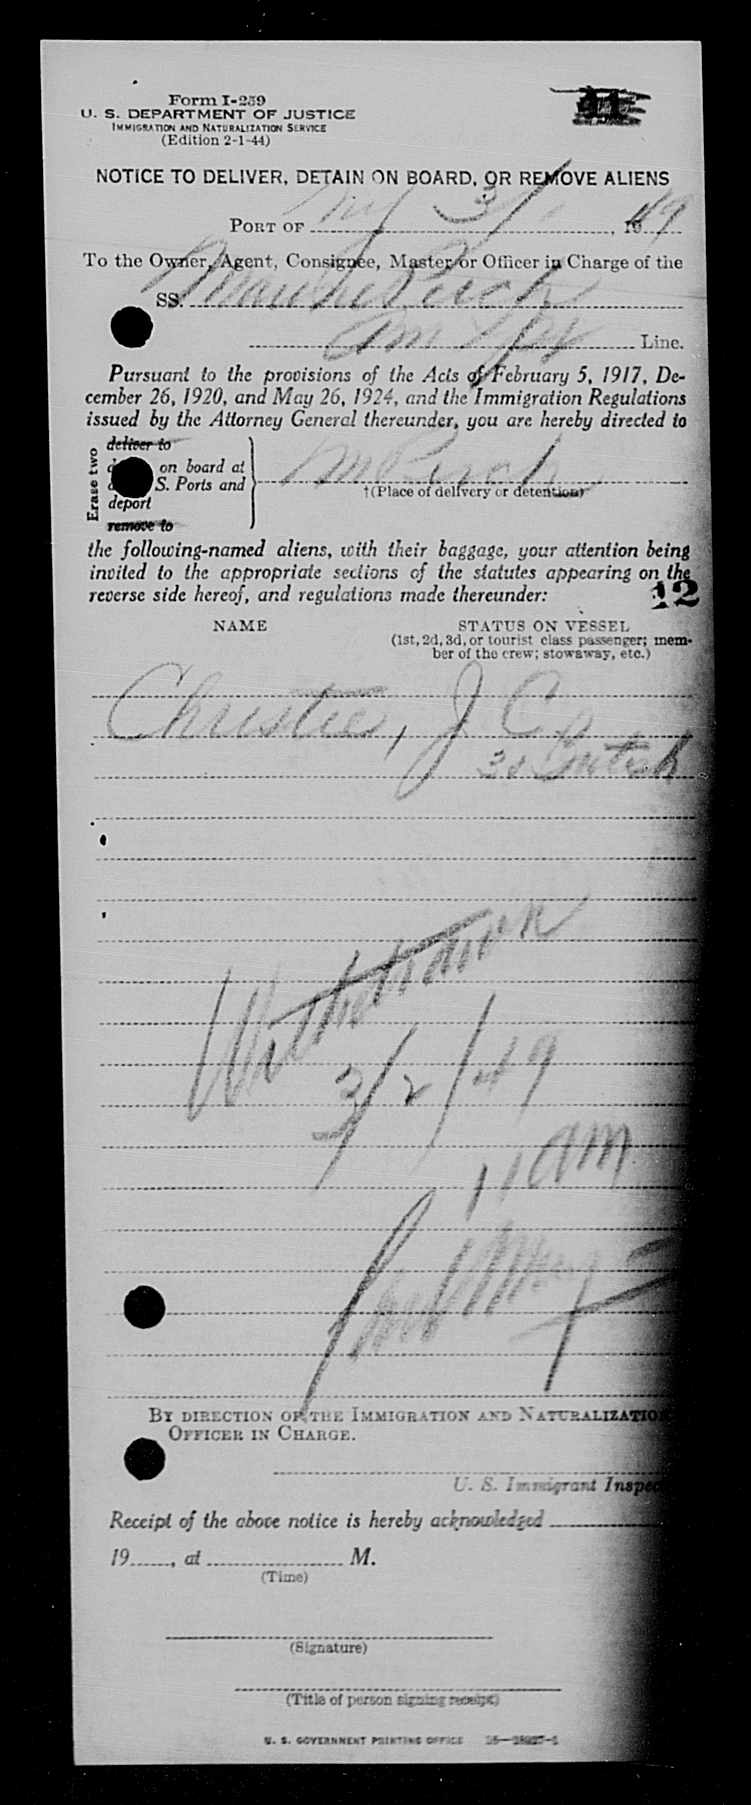 Form I-259
U. S. DEPARTMENT OF JUSTICE
IMMIGRATION AND NATURALIZATION SERVICE
(Edition 2-1-44)
11
NOTICE TO DELIVER, DETAIN ON BOARD, OR REMOVE ALIENS
PORT OF NY 3/1, 1949
To the Owner, Agent, Consignee, Master or Officer in Charge of the
SS.
Line.
Pursuant to the provisions of the Acts of February 5, 1917, De-
cember 26, 1920, and May 26, 1924, and the Immigration Regulations
issued by the Attorney General thereunder, you are hereby directed to
Erase two
deliver to
on board at
S. Ports and
deport
remove to
†(Place of delivery or detention)
the following-named aliens, with their baggage, your attention being
invited to the appropriate sections of the statutes appearing on the
reverse side hereof, and regulations made thereunder:
12
NAME STATUS ON VESSEL
(1st, 2d, 3d, or tourist class passenger; mem-
ber of the crew; stowaway, etc.)
Christie, J C
Withdrawn
3/2/49
11 am
BY DIRECTION OF THE IMMIGRATION AND NATURALIZATIO
OFFICER IN CHARGE.
U. S. Immigrant Inspec
Receipt of the above notice is hereby acknowledged
19____, at ____ M.
(Time)
(Signature)
(Title of person signing receipt)
U. S. GOVERNMENT PRINTING OFFICE